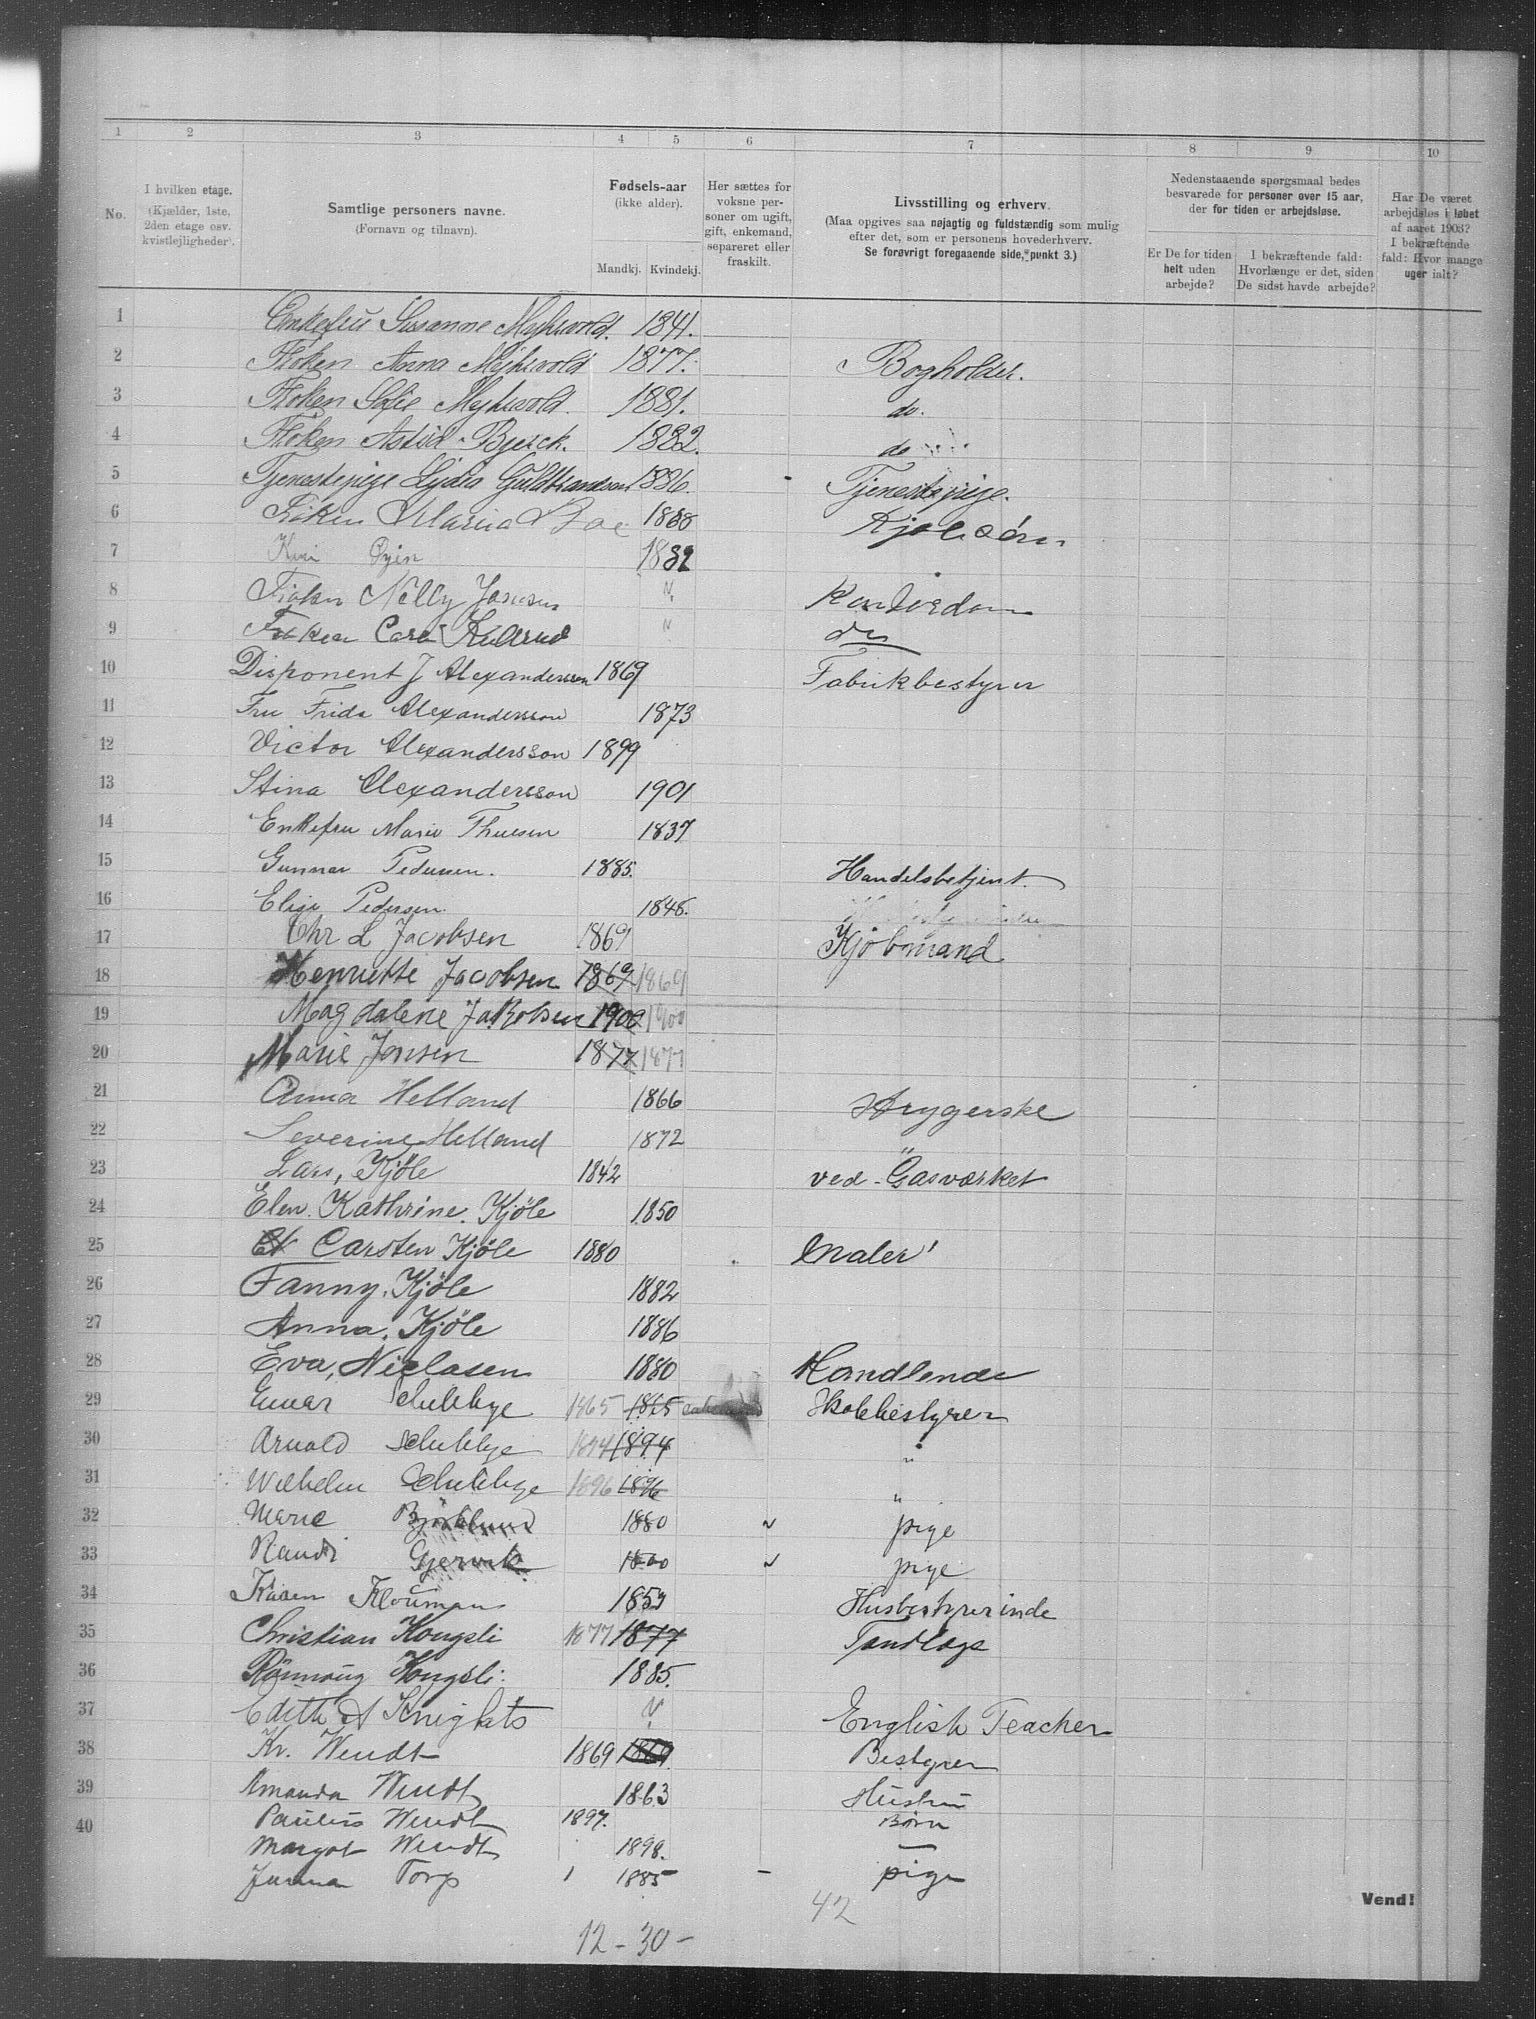 1 2 3 4 5 6 7 8 9 10
No.
I hvilken etage.
(Kjælder, 1ste, 2den etage osv. kvistlejligheder).
Samtlige personers navne.
(Fornavn og tilnavn).
Fødsels-aar
(ikke alder).
Mandkj. Kvindekj.
Her sættes for voksne personer om ugift, gift, enkemand, separeret eller fraskilt.
Livsstilling og erhverv.
(Maa opgives saa nøjagtig og fuldstændig som mulig efter det, som er personens hovederhverv.
Se forøvrigt foregaaende side, punkt 3.)
Nedenstaaende spørgsmaal bedes besvarede for personer over 15 aar, der for tiden er arbejdsløse.
Er De for tiden helt uden arbejde?
I bekræftende fald: Hvorlænge er det, siden De sidst havde arbejde?
Har De været arbejdsløs i løbet af aaret 1903?
I bekræftende fald: Hvor mange uger ialt?
1 Enkefru Susanne Myhrvold. 1841.
2 Frøken Anna Myhrvold 1877. Bogholder.
3 Frøken Sofie Myhrvold. 1881. do.
4 Frøken Astrid Bjerck. 1882. do
5 Tjenestepige Lydia Guldbrandsen 1886. Tjenestepige.
6 Frøken Maria Boe 1888
7 1882
8 Frøken Nelly Jansen Kontordam
9 Frøken Cora do
10 Disponent J Alexandersson 1869 Fabrikbestyrer
11 Fru Frida Alexandersson 1873
12 Victor Alexandersson 1899
13 Stina Alexandersson 1901
14 Enkefru Marie Thuesen 1837
15 Gunnar Pedersen. 1885. Handelsbetjent.
16 Elise Pedersen. 1848.
17 Chr L Jacobsen 1869 Kjøbmand
18 Henriette Jacobsen 1869 1869
19 Magdalene Jakobsen 1900 1900
20 Marie Jonsen 1877 1877
21 Anna Helland 1866 Strygerske
22 Severine Helland 1872 "
23 Lars, Kjöle 1842 ved Gasværket
24 Elen. Kathrine. Kjöle 1850
25 Carsten Kjöle 1880 Maler
26 Fanny, Kjöle 1882
27 Anna, Kjöle 1886
28 Eva, Niclasen 1880 Handlende
29 Einar Schibbye 1865 1865 Skolebestyrer
30 Arnold Schibbye 1894 1894 "
31 Wilhelm Schibbye 1896 1896 "
32 Marie Björklund 1880 pige
33 Randi Gjervik 1880 pige
34 Karen Klouman 1859 Husbestyrerinde
35 Christian Kongsli 1877 1877 Tandlæge
36 Rönnaug Kongsli. 1885.
37 Edith A Knights English Teacher
38 Kr. Wendt 1869 1869 Bestyrer
39 Amanda Wendt 1863 Hustru
40 Paulus Wendt 1897. Børn
Margot Wendt 1898. —
Torp 1885 pige
42
12 - 30 -
Vend!